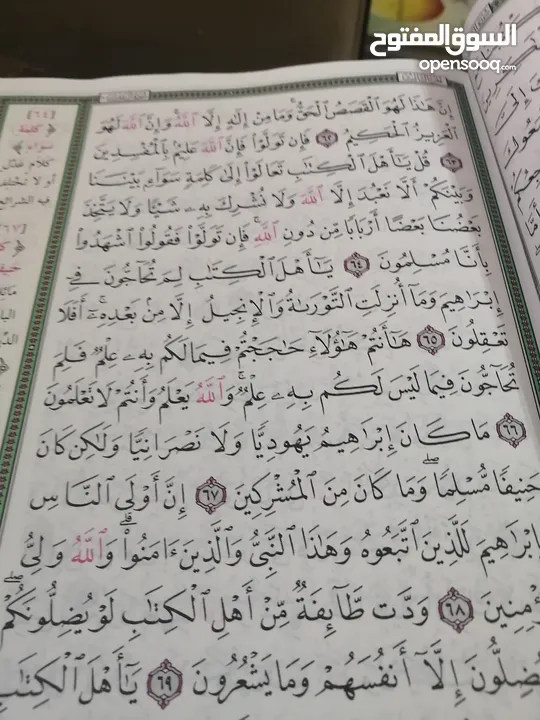 السوق المفتوح
opensooq.com
إِنَّ هَٰذَا لَهُوَ ٱلْقَصَصُ ٱلْحَقُّ وَمَا مِنْ إِلَٰهٍ إِلَّا ٱللَّهُ وَإِنَّ ٱللَّهَ لَهُوَ
ٱلْعَزِيزُ ٱلْحَكِيمُ ٦٢ فَإِن تَوَلَّوْا۟ فَإِنَّ ٱللَّهَ عَلِيمٌۢ بِٱلْمُفْسِدِينَ
٦٣ قُلْ يَٰٓأَهْلَ ٱلْكِتَٰبِ تَعَالَوْا۟ إِلَىٰ كَلِمَةٍ سَوَآءٍۭ بَيْنَنَا
وَبَيْنَكُمْ أَلَّا نَعْبُدَ إِلَّا ٱللَّهَ وَلَا نُشْرِكَ بِهِۦ شَيْـًٔا وَلَا يَتَّخِذَ
بَعْضُنَا بَعْضًا أَرْبَابًا مِّن دُونِ ٱللَّهِ ۚ فَإِن تَوَلَّوْا۟ فَقُولُوا۟ ٱشْهَدُوا۟
بِأَنَّا مُسْلِمُونَ ٦٤ يَٰٓأَهْلَ ٱلْكِتَٰبِ لِمَ تُحَآجُّونَ فِىٓ
إِبْرَٰهِيمَ وَمَآ أُنزِلَتِ ٱلتَّوْرَىٰةُ وَٱلْإِنجِيلُ إِلَّا مِنۢ بَعْدِهِۦٓ ۚ أَفَلَا
تَعْقِلُونَ ٦٥ هَٰٓأَنتُمْ هَٰٓؤُلَآءِ حَٰجَجْتُمْ فِيمَا لَكُم بِهِۦ عِلْمٌ فَلِمَ
تُحَآجُّونَ فِيمَا لَيْسَ لَكُم بِهِۦ عِلْمٌ ۚ وَٱللَّهُ يَعْلَمُ وَأَنتُمْ لَا تَعْلَمُونَ
٦٦ مَا كَانَ إِبْرَٰهِيمُ يَهُودِيًّا وَلَا نَصْرَانِيًّا وَلَٰكِن كَانَ
حَنِيفًا مُّسْلِمًا ۖ وَمَا كَانَ مِنَ ٱلْمُشْرِكِينَ ٦٧ إِنَّ أَوْلَى ٱلنَّاسِ
بِإِبْرَٰهِيمَ لَلَّذِينَ ٱتَّبَعُوهُ وَهَٰذَا ٱلنَّبِىُّ وَٱلَّذِينَ ءَامَنُوا۟ ۗ وَٱللَّهُ وَلِىُّ
ؤْمِنِينَ ٦٨ وَدَّت طَّآئِفَةٌ مِّنْ أَهْلِ ٱلْكِتَٰبِ لَوْ يُضِلُّونَكُمْ
يُضِلُّونَ إِلَّآ أَنفُسَهُمْ وَمَا يَشْعُرُونَ ٦٩ يَٰٓأَهْلَ ٱلْكِتَٰبِ
[٦٤]
كلمة
سواء